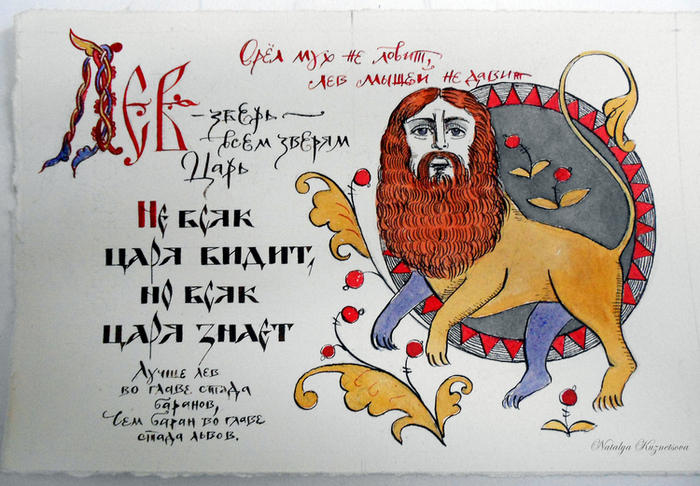 Орёл мух не ловит,
лев мышей не давит
Лев
- зверь -
всем зверям
Царь
Не всяк
царя видит,
но всяк
царя знает
Лучше лев
во главе стада
баранов,
Чем баран во главе
стада львов.
Natalya Kuznetsova